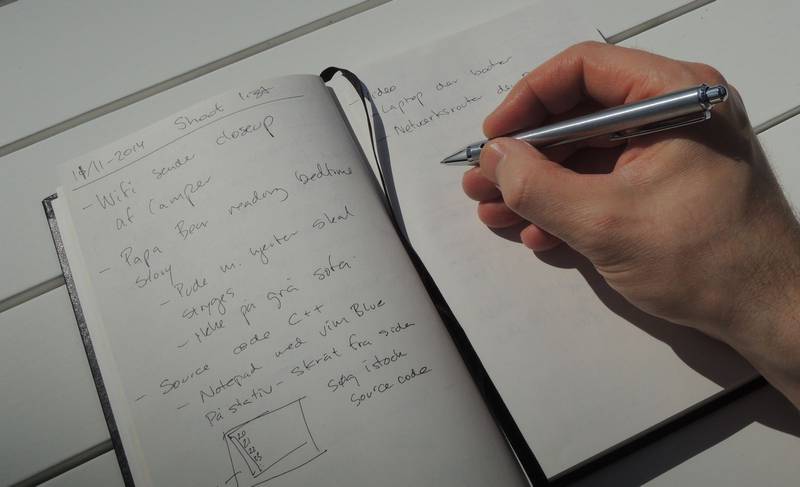 17/11-2014 Shoot list
- Wifi sende closeup
af Camper
- Papa Bear reading bedtime
story
- Pude m. hjerter skal
stryges
- på grå sofa
- Source code C++
- Notepad med vim Blue
På stativ - skråt fra side
Søg istock
source code
20
21
22
23
- video
Laptop der booter
Netværksrouter der